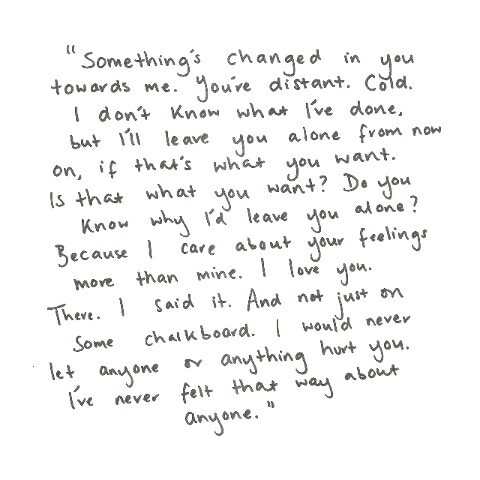 "Something's changed in you
towards me. You're distant. Cold.
I don't know what I've done,
but I'll leave you alone from now
on, if that's what you want.
Is that what you want? Do you
know why I'd leave you alone?
Because I care about your feelings
more than mine. I love you.
There. I said it. And not just on
some chalkboard. I would never
let anyone or anything hurt you.
I've never felt that way about
anyone."